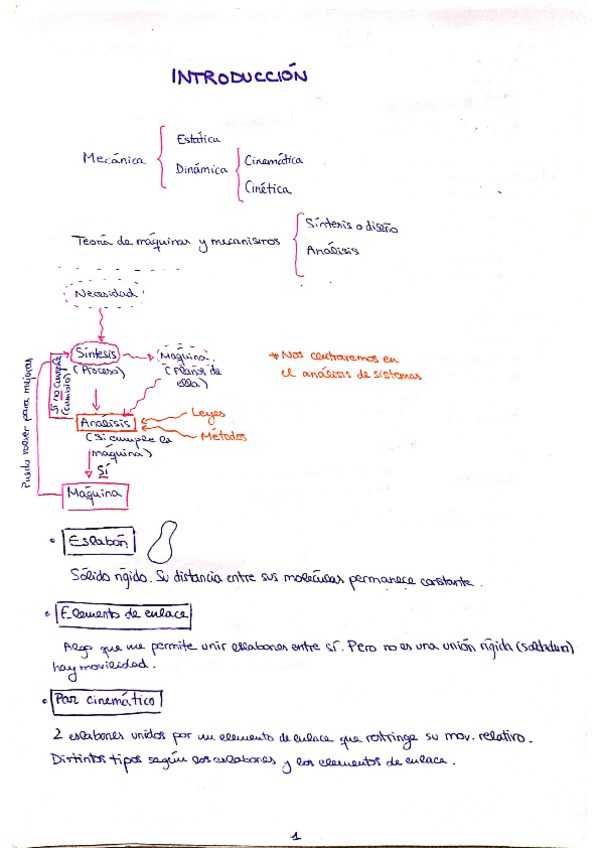 INTRODUCCIÓN
Mecánica
Estática
Dinámica
Cinemática
Cinética
Teoría de máquinas y mecanismos
Síntesis o diseño
Análisis
Necesidad
Síntesis
(Proceso)
Máquina
(planos de
ella)
* Nos centraremos en
el análisis de sistemas
Puedo volver para mejorar
Si no cumple
(cambio)
Análisis
Leyes
Métodos
(Si cumple la
máquina)
Sí
Máquina
• Eslabón
Sólido rígido. Su distancia entre sus moléculas permanece constante.
• Elemento de enlace
Algo que me permite unir eslabones entre sí. Pero no es una unión rígida (soldadura)
hay movilidad.
• Par cinemático
2 eslabones unidos por un elemento de enlace que restringe su mov. relativo.
Distintos tipos según los eslabones y los elementos de enlace.
1